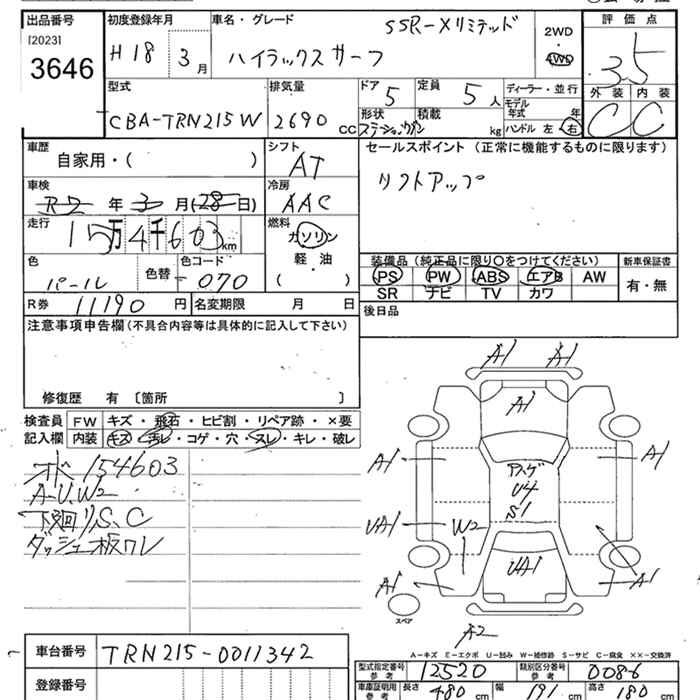 出品番号 初度登録年月 車名・グレード SSR-Xリミテッド 評価点
[2023]
3646
H18 3月 ハイラックスサーフ 2WD 4WD 3.5
外装 内装
C C
型式 排気量 ドア 5 定員 5人 ディーラー・並行
モデル年式 年
CBA-TRN215W 2690CC 形状 ステーションワゴン 積載 kg ハンドル 左 右
車歴 シフト セールスポイント(正常に機能するものに限ります)
自家用・( ) AT リフトアップ
車検 冷房
R2年3月(28日) AAC
走行 燃料
15万4千603km ガソリン
軽・油
( )
色 色替 色コード
パール 070
装備品(純正品に限り○をつけてください) 新車保証書
PS PW ABS エアB AW 有・無
SR ナビ TV カワ
R券 11190円 名変期限 月 日 後日品
注意事項申告欄(不具合内容等は具体的に記入して下さい)
修復歴 有〔箇所 〕
検査員記入欄 FW キズ・飛石・ヒビ割・リペア跡・×要
内装 キズ・汚レ・コゲ・穴・スレ・キレ・破レ
154603
A-U.W2
下廻りS.C
ダッシュ板ワレ
A1 A1
A1
A1 A1
U4
S1
UA1 W2
UA1
A1 A1
スペア
A2
A-キズ E-エクボ U-凹み W-補修跡 S-サビ C-腐食 XX-交換済
車台番号 TRN215-0011342
型式指定番号 参考 12520 類別区分番号 参考 0086
登録番号
車庫証明用 参考 長さ 480cm 幅 191cm 高さ 180cm